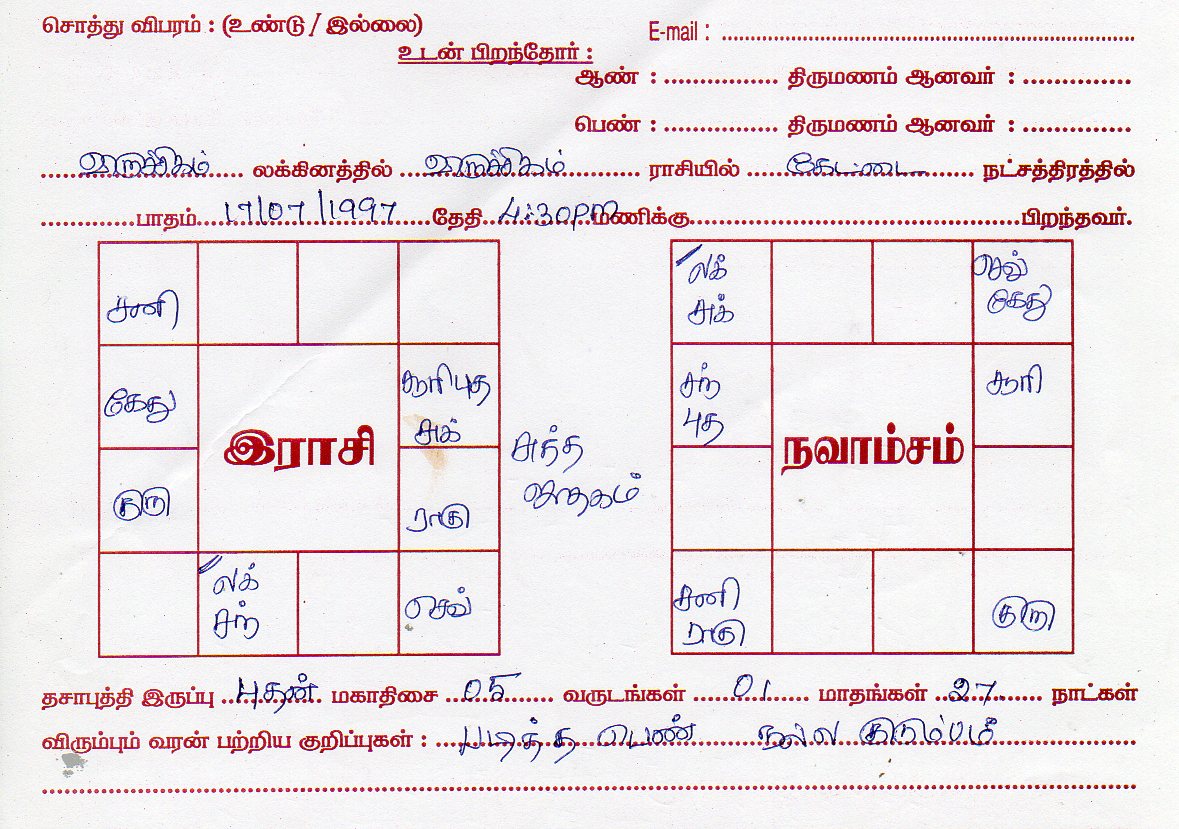 சொத்து விபரம் : (உண்டு / இல்லை)
E-mail : ........................
உடன் பிறந்தோர் :
ஆண் : ............... திருமணம் ஆனவர் : ..............
பெண் : ............... திருமணம் ஆனவர் : ..............
விருச்சிகம் லக்கினத்தில் விருச்சிகம் ராசியில் கேட்டை நட்சத்திரத்தில்
............... பாதம் 17/07/1997 தேதி 4:30PM மணிக்கு ............... பிறந்தவர்.
சனி
கேது
குரு
லக்
சந்
செவ்
ராகு
சூரி புத
சுக்
இராசி
அந்த
ஜாதகம்
லக்
சுக்
செவ்
கேது
சந்
புத
சூரி
நவாம்சம்
சனி
ராகு
குரு
தசாபுத்தி இருப்பு புதன் மகாதிசை 05 வருடங்கள் 01 மாதங்கள் 27 நாட்கள்
விரும்பும் வரன் பற்றிய குறிப்புகள் : படித்த பெண் நல்ல குடும்பம்